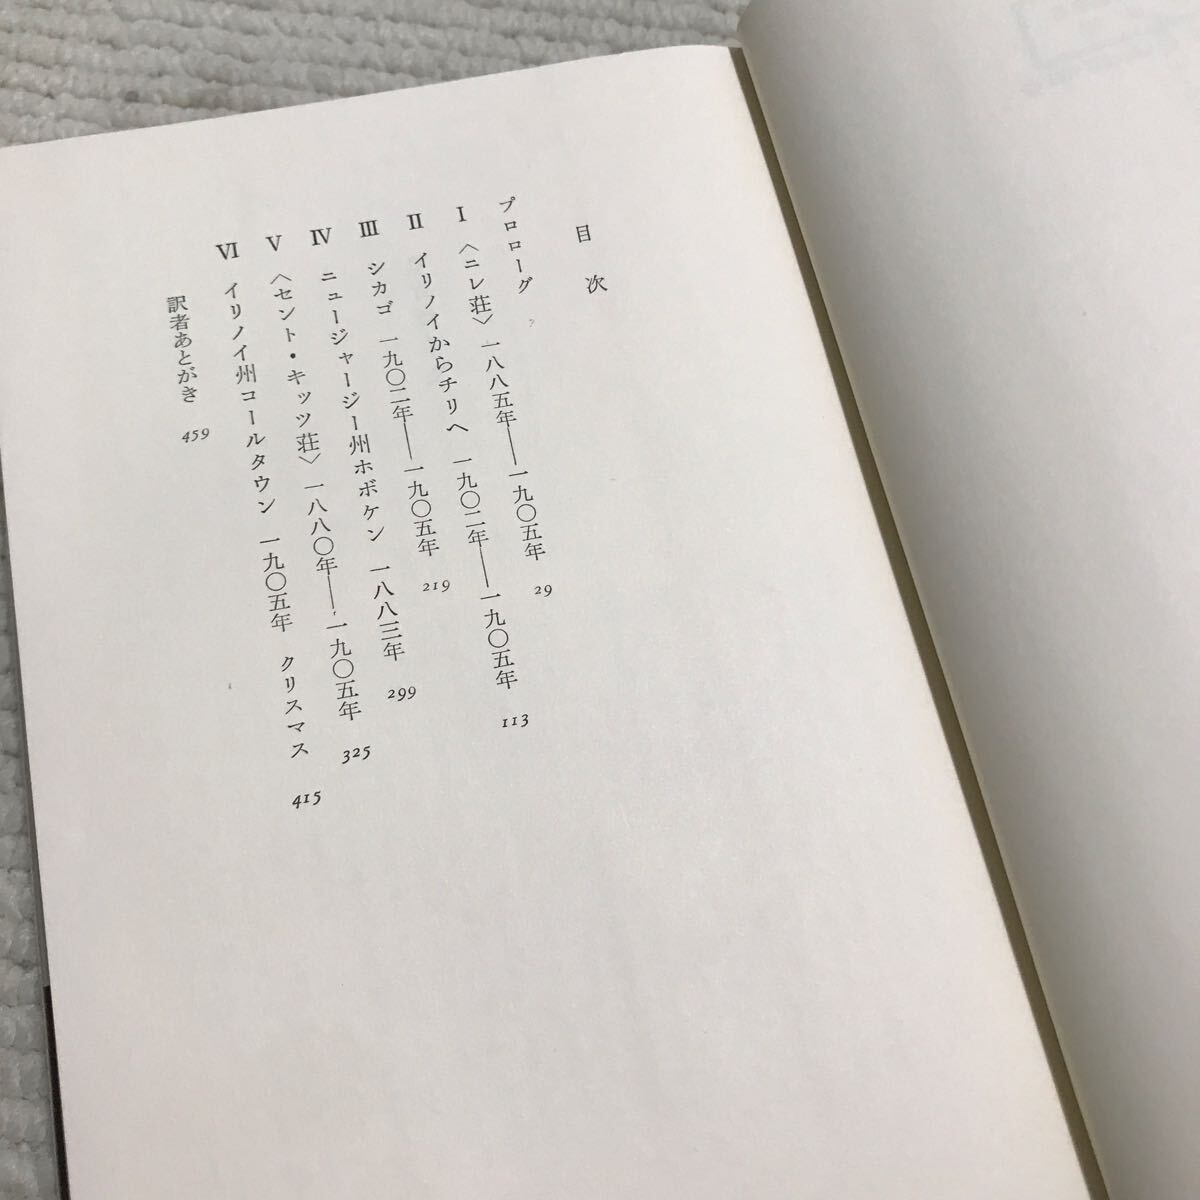 目次
プロローグ 7
I 〈ニレ荘〉一八八五年――一九〇五年 29
II イリノイからチリへ 一九〇二年――一九〇五年 113
III シカゴ 一九〇二年――一九〇五年 219
IV ニュージャージー州ホボケン 一八八三年 299
V 〈セント・キッツ荘〉一八八〇年――一九〇五年 325
VI イリノイ州コールタウン 一九〇五年 クリスマス 415
訳者あとがき 459